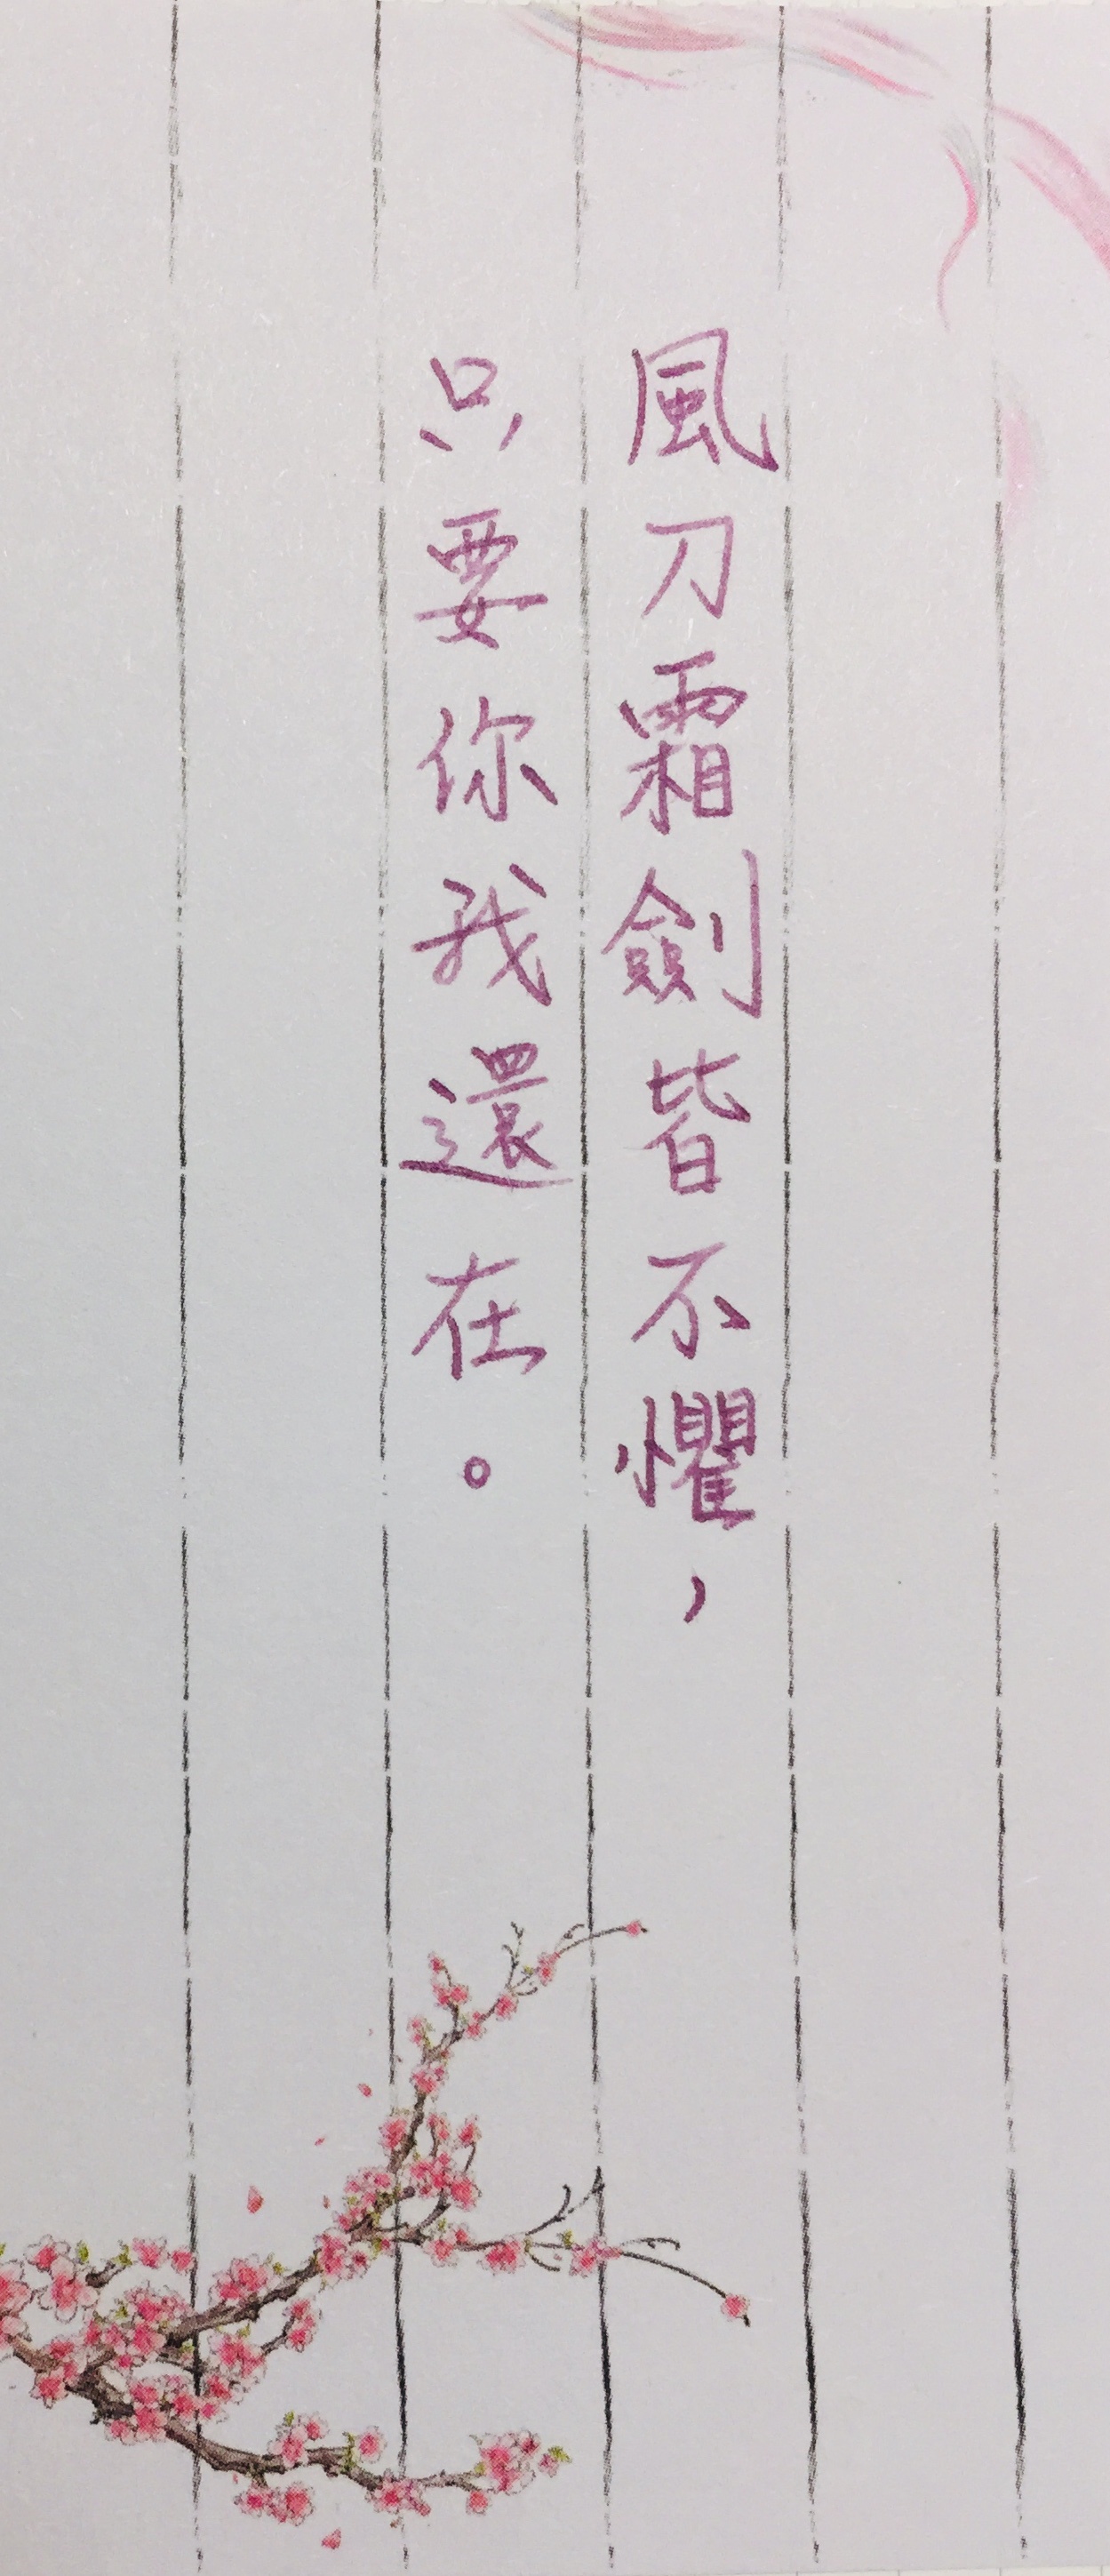 風刀霜劍皆不懼，
只要你我還在。